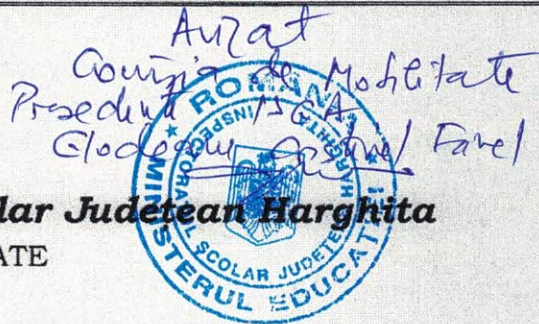 Avizat
Comisia de Mobilitate
Președinte
Pavel
ROMÂNIA
MINISTERUL EDUCAȚIEI
INSPECTORATUL ȘCOLAR JUDEȚEAN HARGHITA
lar Judetean Harghita
ATE